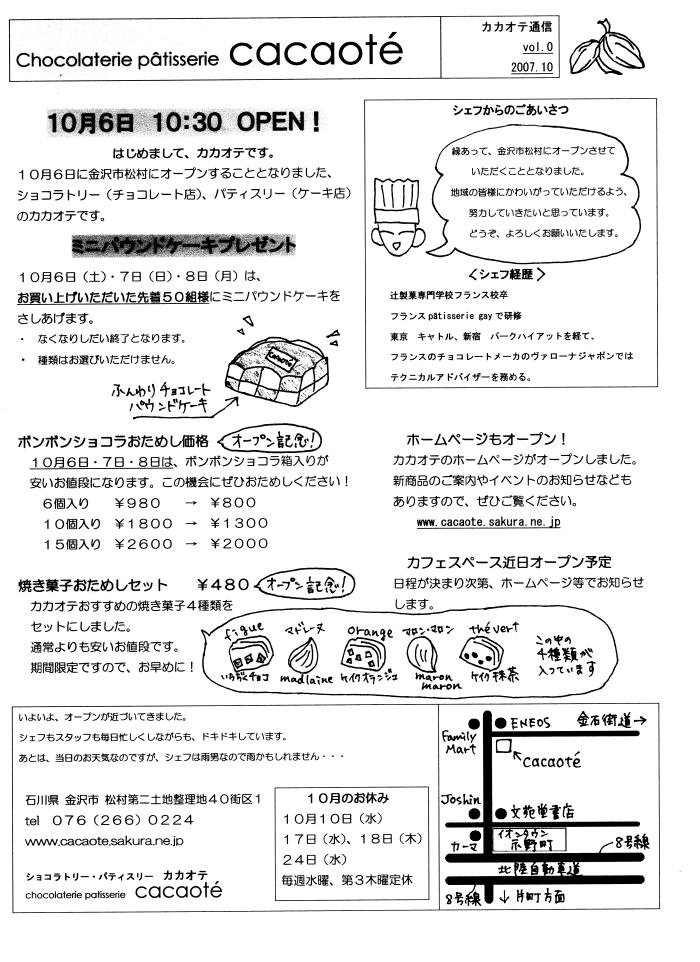 Chocolaterie pâtisserie cacaoté
カカオテ通信
vol.0
2007.10
10月6日 10:30 OPEN！
はじめまして、カカオテです。
１０月６日に金沢市松村にオープンすることとなりました、
ショコラトリー（チョコレート店）、パティスリー（ケーキ店）
のカカオテです。
ミニパウンドケーキプレゼント
１０月６日（土）・７日（日）・８日（月）は、
お買い上げいただいた先着５０組様にミニパウンドケーキを
さしあげます。
・ なくなりしだい終了となります。
・ 種類はお選びいただけません。
cacaoté
ふんわりチョコレート
パウンドケーキ
シェフからのごあいさつ
縁あって、金沢市松村にオープンさせて
いただくこととなりました。
地域の皆様にかわいがっていただけるよう、
努力していきたいと思っています。
どうぞ、よろしくお願いいたします。
＜シェフ経歴＞
辻製菓専門学校フランス校卒
フランス pâtisserie gay で研修
東京 キャトル、新宿 パークハイアットを経て、
フランスのチョコレートメーカのヴァローナジャポンでは
テクニカルアドバイザーを務める。
ボンボンショコラおためし価格 オープン記念！
１０月６日・７日・８日は、ボンボンショコラ箱入りが
安いお値段になります。この機会にぜひおためしください！
６個入り ￥９８０ → ￥８００
１０個入り ￥１８００ → ￥１３００
１５個入り ￥２６００ → ￥２０００
焼き菓子おためしセット ￥４８０ オープン記念！
カカオテおすすめの焼き菓子４種類を
セットにしました。
通常よりも安いお値段です。
期間限定ですので、お早めに！
figue マドレーヌ orange マロン・マロン thé vert
いち茂チョコ madlaine ケイクオランジュ maron maron ケイク抹茶
この中の
４種類が
入っています
ホームページもオープン！
カカオテのホームページがオープンしました。
新商品のご案内やイベントのお知らせなども
ありますので、ぜひご覧ください。
www.cacaote.sakura.ne.jp
カフェスペース近日オープン予定
日程が決まり次第、ホームページ等でお知らせ
します。
いよいよ、オープンが近づいてきました。
シェフもスタッフも毎日忙しくしながらも、ドキドキしています。
あとは、当日のお天気なのですが、シェフは雨男なので雨かもしれません・・・
石川県 金沢市 松村第二土地整理地４０街区１
tel ０７６（２６６）０２２４
www.cacaote.sakura.ne.jp
ショコラトリー・パティスリー カカオテ
chocolaterie patisserie cacaoté
１０月のお休み
１０月１０日（水）
１７日（水）、１８日（木）
２４日（水）
毎週水曜、第３木曜定休
Family Mart
ENEOS
金石街道→
cacaoté
Joshin
文苑堂書店
カーマ
イオンタウン
示野町
8号線
北陸自動車道
8号線
↓片町方面